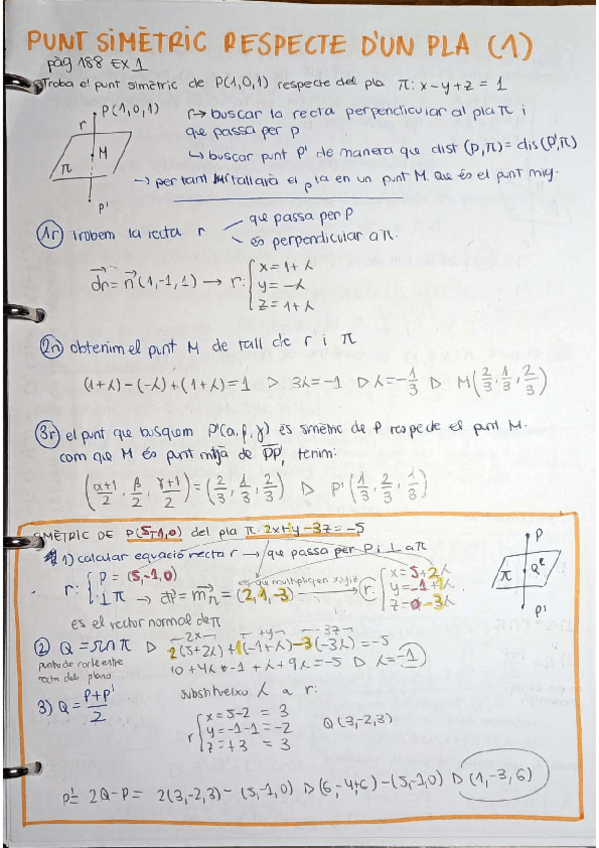 PUNT SIMÈTRIC RESPECTE D'UN PLA (1)
pàg 188 EX 1
Troba el punt simètric de P(1,0,1) respecte del pla π: x-y+z = 1
P(1,0,1)
r
M
π
P'
r→ buscar la recta perpendicular al pla π i
que passa per P
↳ buscar punt P' de manera que dist (P,π) = dis(P',π)
→ per tant tallarà el pla en un punt M. Que és el punt mig.
1r) trobem la recta r
que passa per P
és perpendicular a π.
dr = n(1,-1,1) → r: { x = 1+λ
y = -λ
z = 1+λ
2n) obtenim el punt M de tall de r i π
(1+λ) - (-λ) + (1+λ) = 1 ▷ 3λ = -1 ▷ λ = -1/3 ▷ M(2/3, 1/3, 2/3)
3r) el punt que busquem P'(α, β, γ) és simètric de P respecte el punt M.
com que M és punt mitjà de PP', tenim:
(α+1/2, β/2, γ+1/2) = (2/3, 1/3, 2/3) ▷ P'(1/3, 2/3, 1/3)
SIMÈTRIC DE P(5,-1,0) del pla π: 2x+y-3z = -5
1) calcular equació recta r → que passa per P i ⊥ a π
r: { P = (5,-1,0)
⊥π → dr = mπ = (2,1,-3) → r: { x = 5+2λ
y = -1+1λ
z = 0-3λ
els que multipliquen x,y,z
és el rector normal de π
P
π
Q
P'
2) Q = r∩π ▷ 2(5+2λ) + 1(-1+λ) - 3(-3λ) = -5
2x +y -3z
punto de corte entre
recta del plano
10+4λ-1+λ+9λ = -5 ▷ λ = -1
3) Q = P+P'/2
substitueixo λ a r:
r { x = 5-2 = 3
y = -1-1 = -2
z = +3 = 3
Q(3,-2,3)
P' = 2Q-P = 2(3,-2,3) - (5,-1,0) ▷ (6,-4,6) - (5,-1,0) ▷ (1,-3,6)